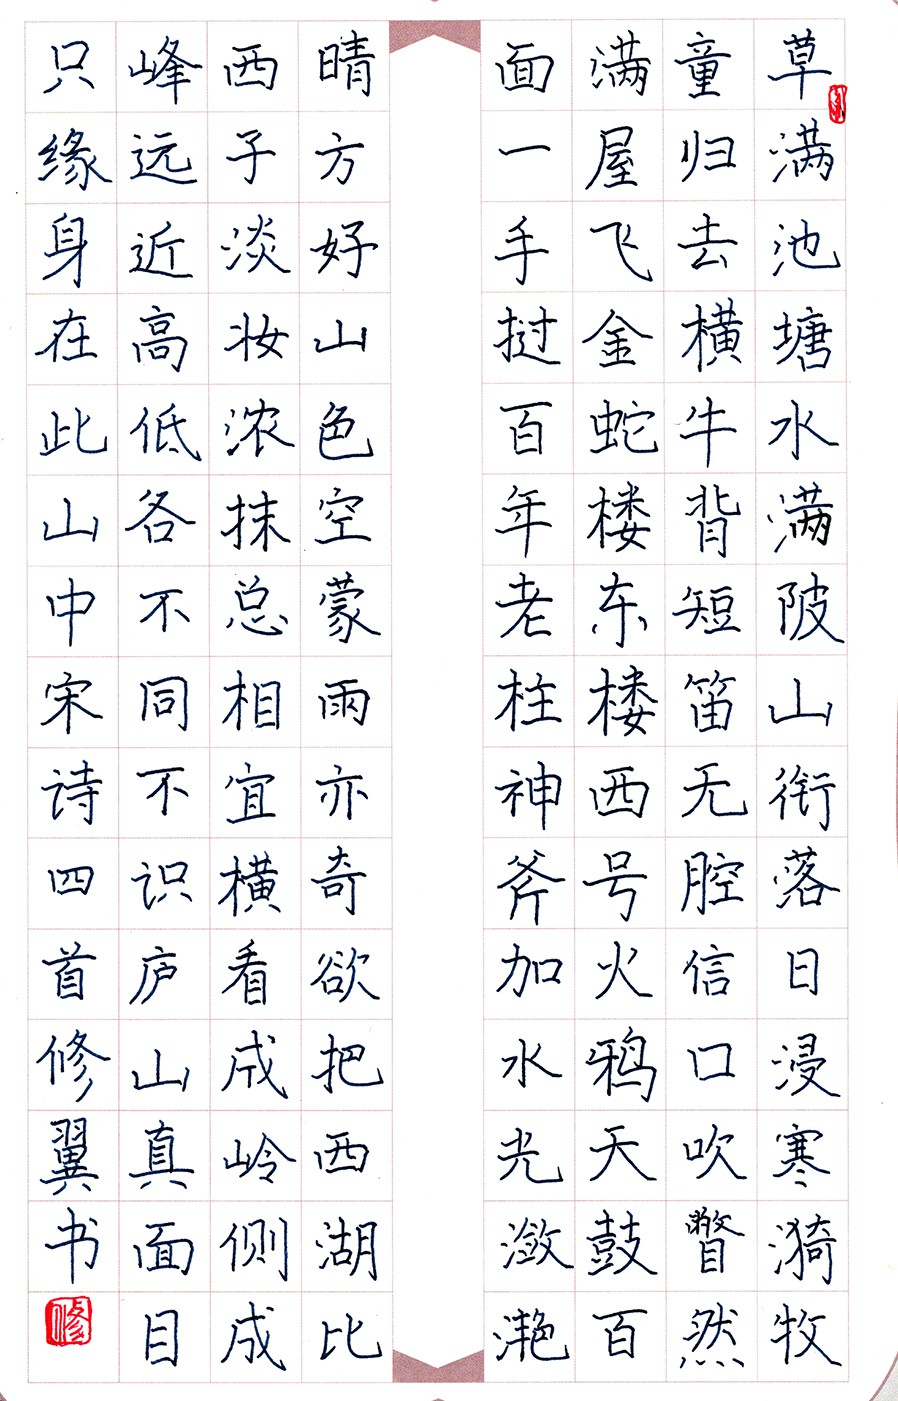 草满池塘水满陂山衔落日浸寒漪牧
童归去横牛背短笛无腔信口吹瞥然
满屋飞金蛇楼东楼西号火鸦天鼓百
面一手挝百年老柱神斧加水光潋滟
晴方好山色空蒙雨亦奇欲把西湖比
西子淡妆浓抹总相宜横看成岭侧成
峰远近高低各不同不识庐山真面目
只缘身在此山中宋诗四首修翼书
修